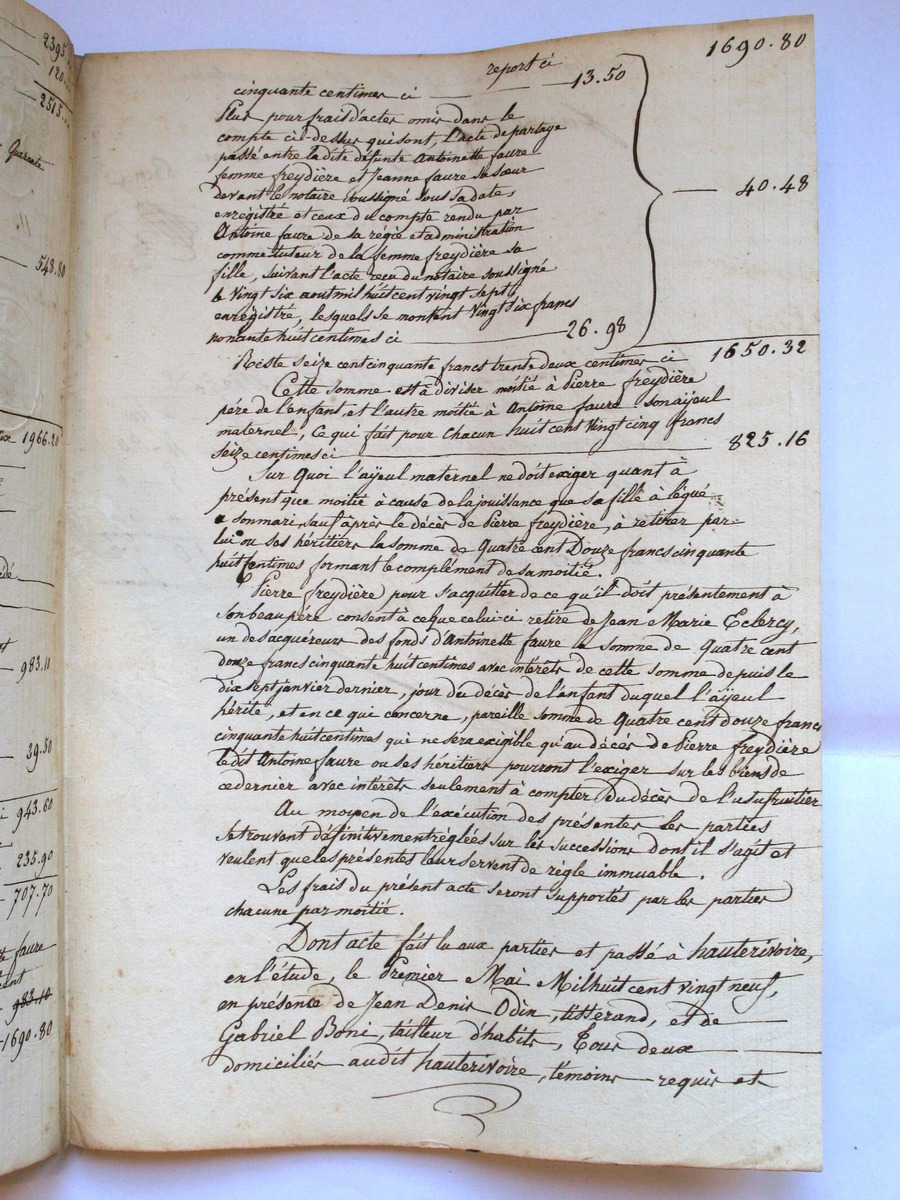 2395
120
2515
Quarante
548.80
1966.20
983.10
39.50
943.60
235.90
707.70
faure
983.10
1690.80
report ci 1690.80
cinquante centimes ci 13.50
Plus pour frais d'actes omis dans le
compte ci-dessus qui sont, l'acte de partage
passé entre ladite défunte Antoinette faure
femme freydière et Jeanne faure sa sœur
devant le notaire soussigné sous sa date,
40.48
enregistré et ceux du compte rendu par
Antoine faure de sa régie et administration
comme tuteur de la femme freydière sa
fille, suivant l'acte reçu du notaire soussigné
le Vingt six aout mil huit cent vingt sept,
enregistré, lesquels se montent Vingt six francs
nonante huit centimes ci 26.98
Reste seize cent cinquante francs trente deux centimes ci 1650.32
Cette somme est à diviser moitié à Pierre freydière
père de l'enfant, et l'autre moitié à Antoine faure son aïeul
maternel, Ce qui fait pour Chacun huit cent Vingt cinq francs
Seize centimes ci 825.16
Sur Quoi l'aÿeul maternel ne doit exiger quant à
présent que moitié à cause de la jouissance que sa fille à légué
a son mari, sauf après le décès de Pierre freydière, à retirer par
lui ou ses héritiers la somme de Quatre cent Douze francs cinquante
huit Centimes formant le complément de sa moitié.
Pierre freydière pour s'acquitter de ce qu'il doit présentement à
Son beau père consent à ce que celui-ci retire de Jean Marie Eclercy,
un des acquéreurs des fonds d'Antoinette faure la somme de Quatre cent
douze francs cinquante huit centimes avec intérêts de cette somme depuis le
dix sept janvier dernier, jour du décès de l'enfant duquel l'aÿeul
hérite, et en ce qui concerne, pareille somme de Quatre cent douze francs
cinquante huit centimes qui ne sera exigible qu'au décès de Pierre freydière
ledit Antoine faure ou ses héritiers pourront l'exiger sur les biens de
ce dernier avec intérêts seulement à compter du décès de l'usufruitier
Au moyen de l'exécution des présentes les parties
se trouvant définitivement réglées sur les successions dont il s'agit et
veulent que les présentes leur servent de règle immuable.
Les frais du présent acte seront supportés par les parties
chacune par moitié.
Dont acte fait lu aux parties et passé à hauterivoire,
en l'étude, le Premier Mai Mil huit cent vingt neuf,
en présence de Jean Denis Odin, tisserand, et de
Gabriel Boni, tailleur d'habits, Tous deux
domiciliés audit hauterivoire, témoins requis et